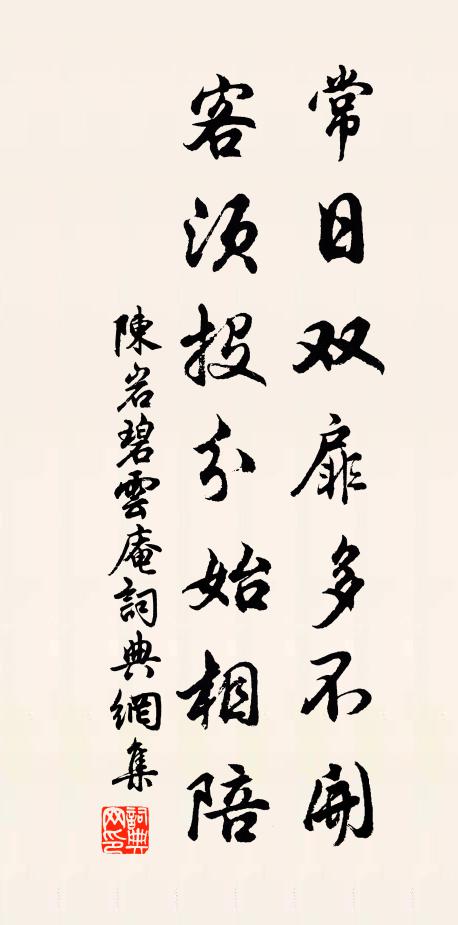 常日双扉多不開
客須投分始相陪
陳岩碧雲庵詞典網集
詞典网印